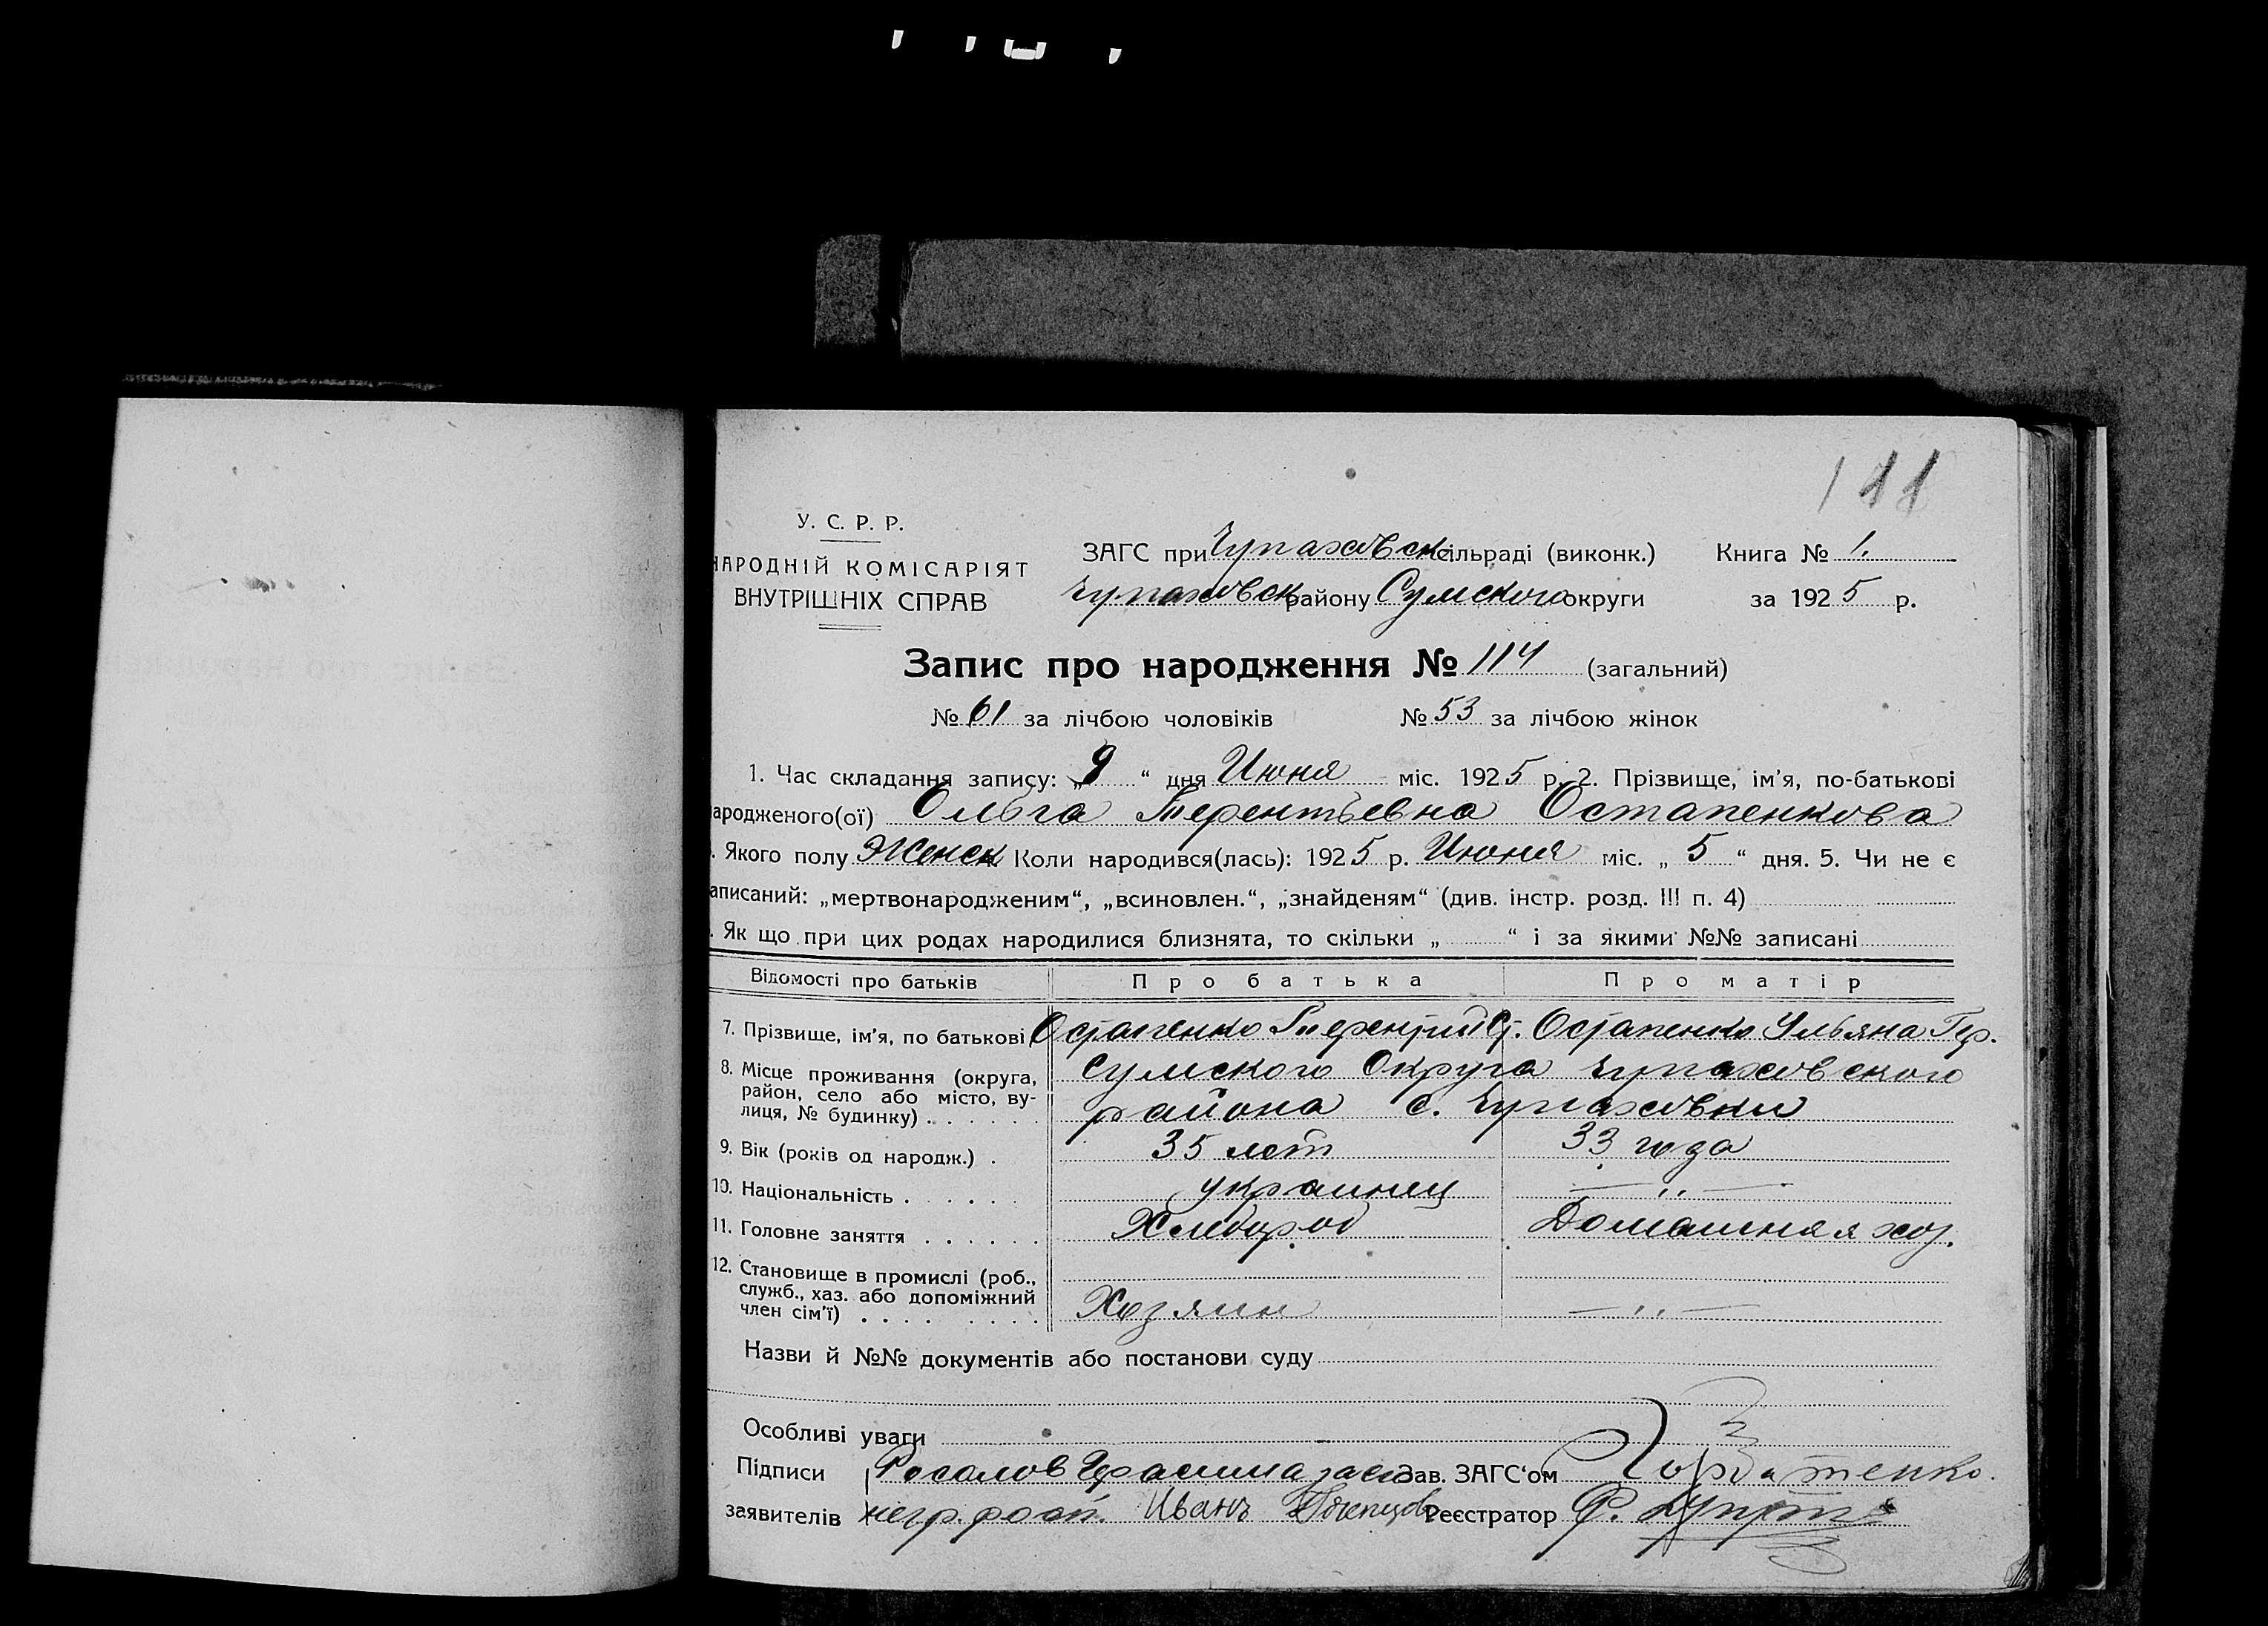 111
У. С. Р. Р.
НАРОДНІЙ КОМІСАРІЯТ
ВНУТРІШНІХ СПРАВ
ЗАГС при Чупаховск сільраді (виконк.) Книга № 1.
Чупаховск району Сумского округи за 1925 р.
Запис про народження № 114 (загальний)
№ 61 за лічбою чоловіків № 53 за лічбою жінок
1. Час складання запису: „9“ дня Июня міс. 1925 р. 2. Прізвище, ім’я, по-батькові
ародженого(ої) Ольга Терентьевна Остапенкова
. Якого полу Женск Коли народився(лась): 1925 р. Июня міс. „5“ дня. 5. Чи не є
аписаний: „мертвонародженим“, „всиновлен.“, „знайденям“ (див. інстр. розд. III п. 4)
. Як що при цих родах народилися близнята, то скільки „ “ і за якими №№ записані
Відомості про батьків Про батька Про матір
7. Прізвище, ім’я, по батькові Остапенко Терентий Остапенко Ульяна
8. Місце проживання (округа, район, село або місто, ву-
лиця, № будинку) Сумского Округа Чупаховского
района с. Чупаховки
9. Вік (років од народж.) 35 лет 33 года
10. Національність украинец — ,, —
11. Головне заняття Хлебороб Домашняя хоз.
12. Становище в промислі (роб.,
служб., хаз. або допоміжний
член сім’ї) Хозяин — ,, —
Назви й №№ документів або постанови суду
Особливі уваги
Підписи Зав. ЗАГС‘ом
заявителів негр. Иванъ Реєстратор Ф.